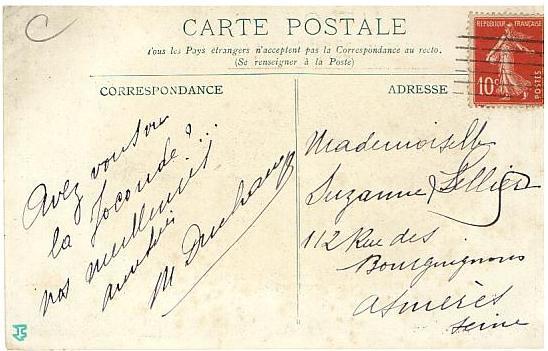 C
CARTE POSTALE
Tous les Pays étrangers n'acceptent pas la Correspondance au recto.
(Se renseigner à la Poste)
CORRESPONDANCE
ADRESSE
REPUBLIQUE FRANÇAISE
10 c
POSTES
Avez vous vu
la Joconde ? ...
M Duchamp
Mademoiselle
Suzanne Sellier
112 Rue des
Bourguignons
Asnières
Seine